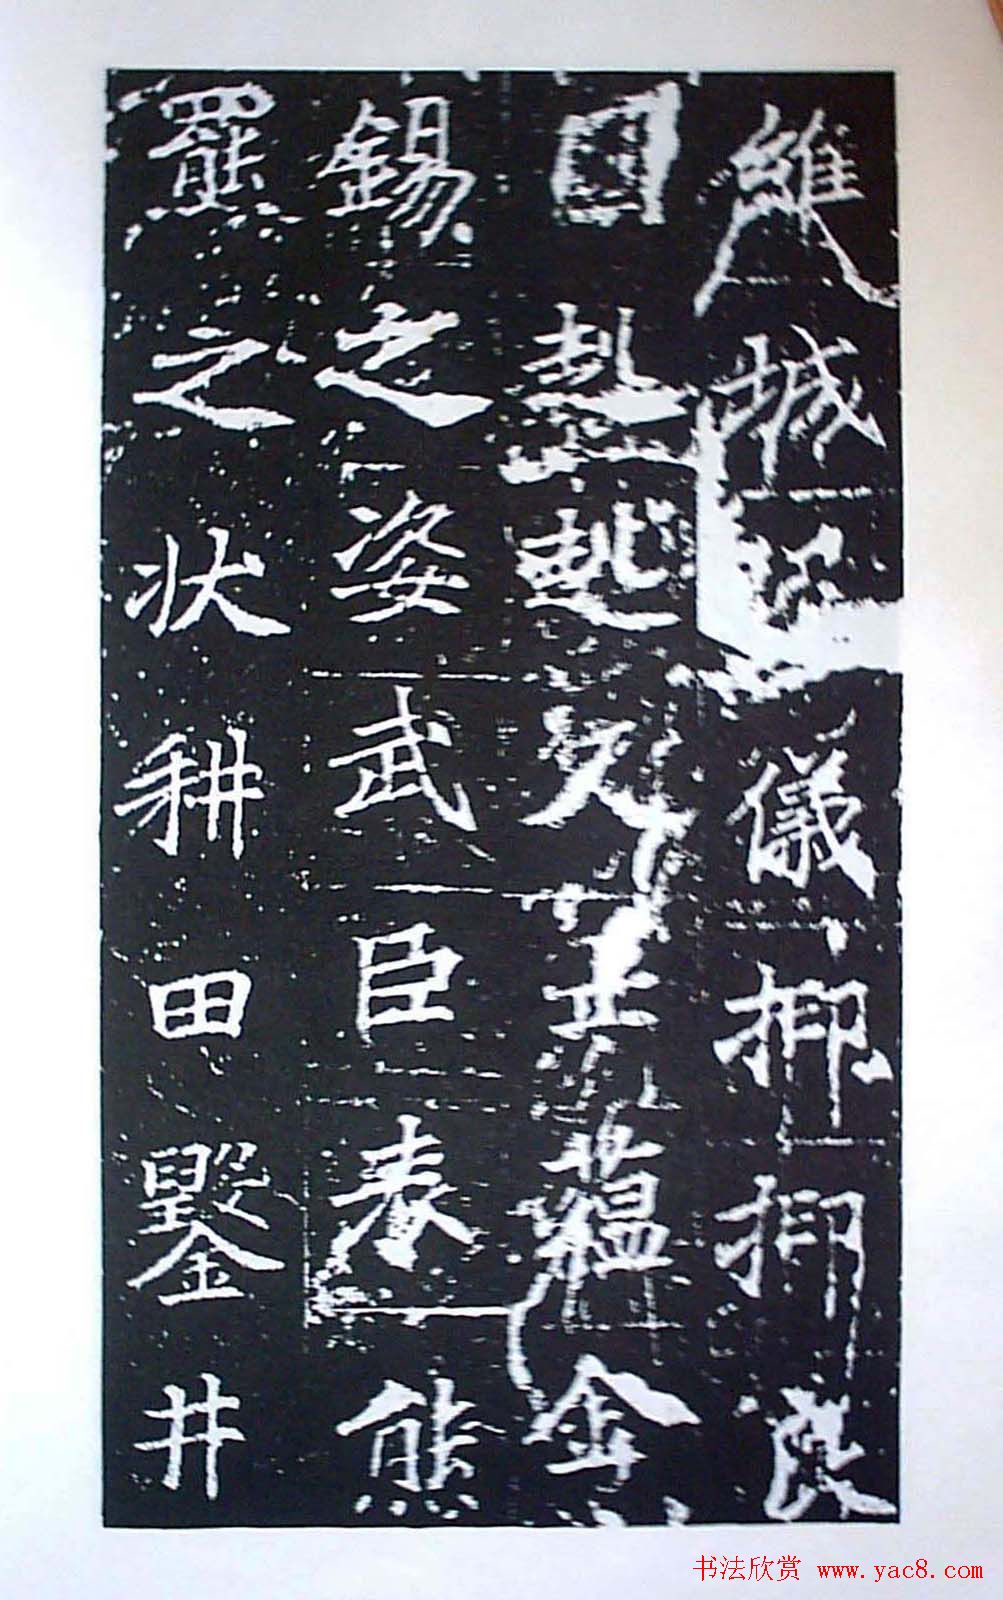 維城儀抑抑良
赳赳蘊金
錫之姿武臣奉熊
羆之状耕田鑿井
书法欣赏 www.yac8.com